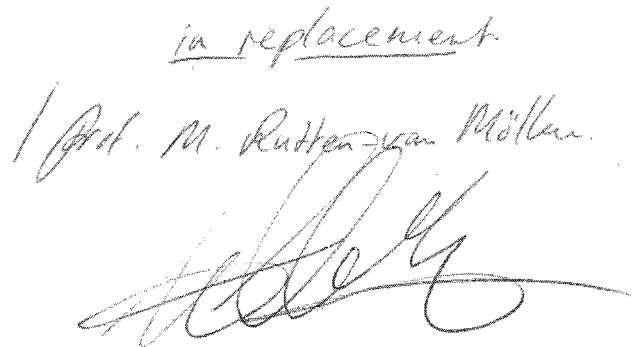 in replacement.
/ Prof. M. Rutten-van Mölken.